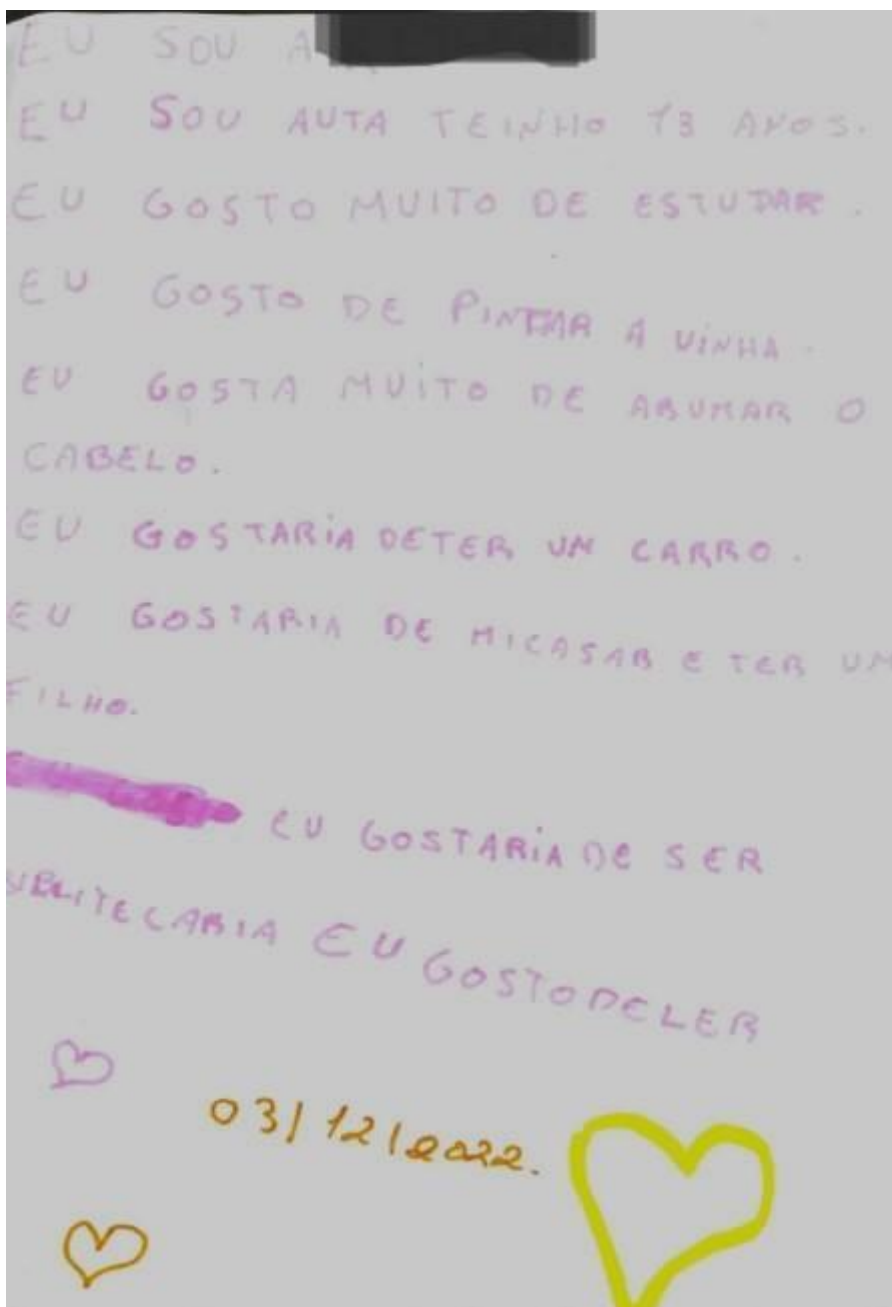 EU SOU A
EU SOU AUTA TEINHO 13 ANOS.
EU GOSTO MUITO DE ESTUDAR.
EU GOSTO DE PINTAR A UINHA.
EU GOSTA MUITO DE ARUMAR O
CABELO.
EU GOSTARIA DETER UM CARRO.
EU GOSTARIA DE MICASAR E TER UM
FILHO.
EU GOSTARIA DE SER
EU GOSTODELER
03/12/2022.